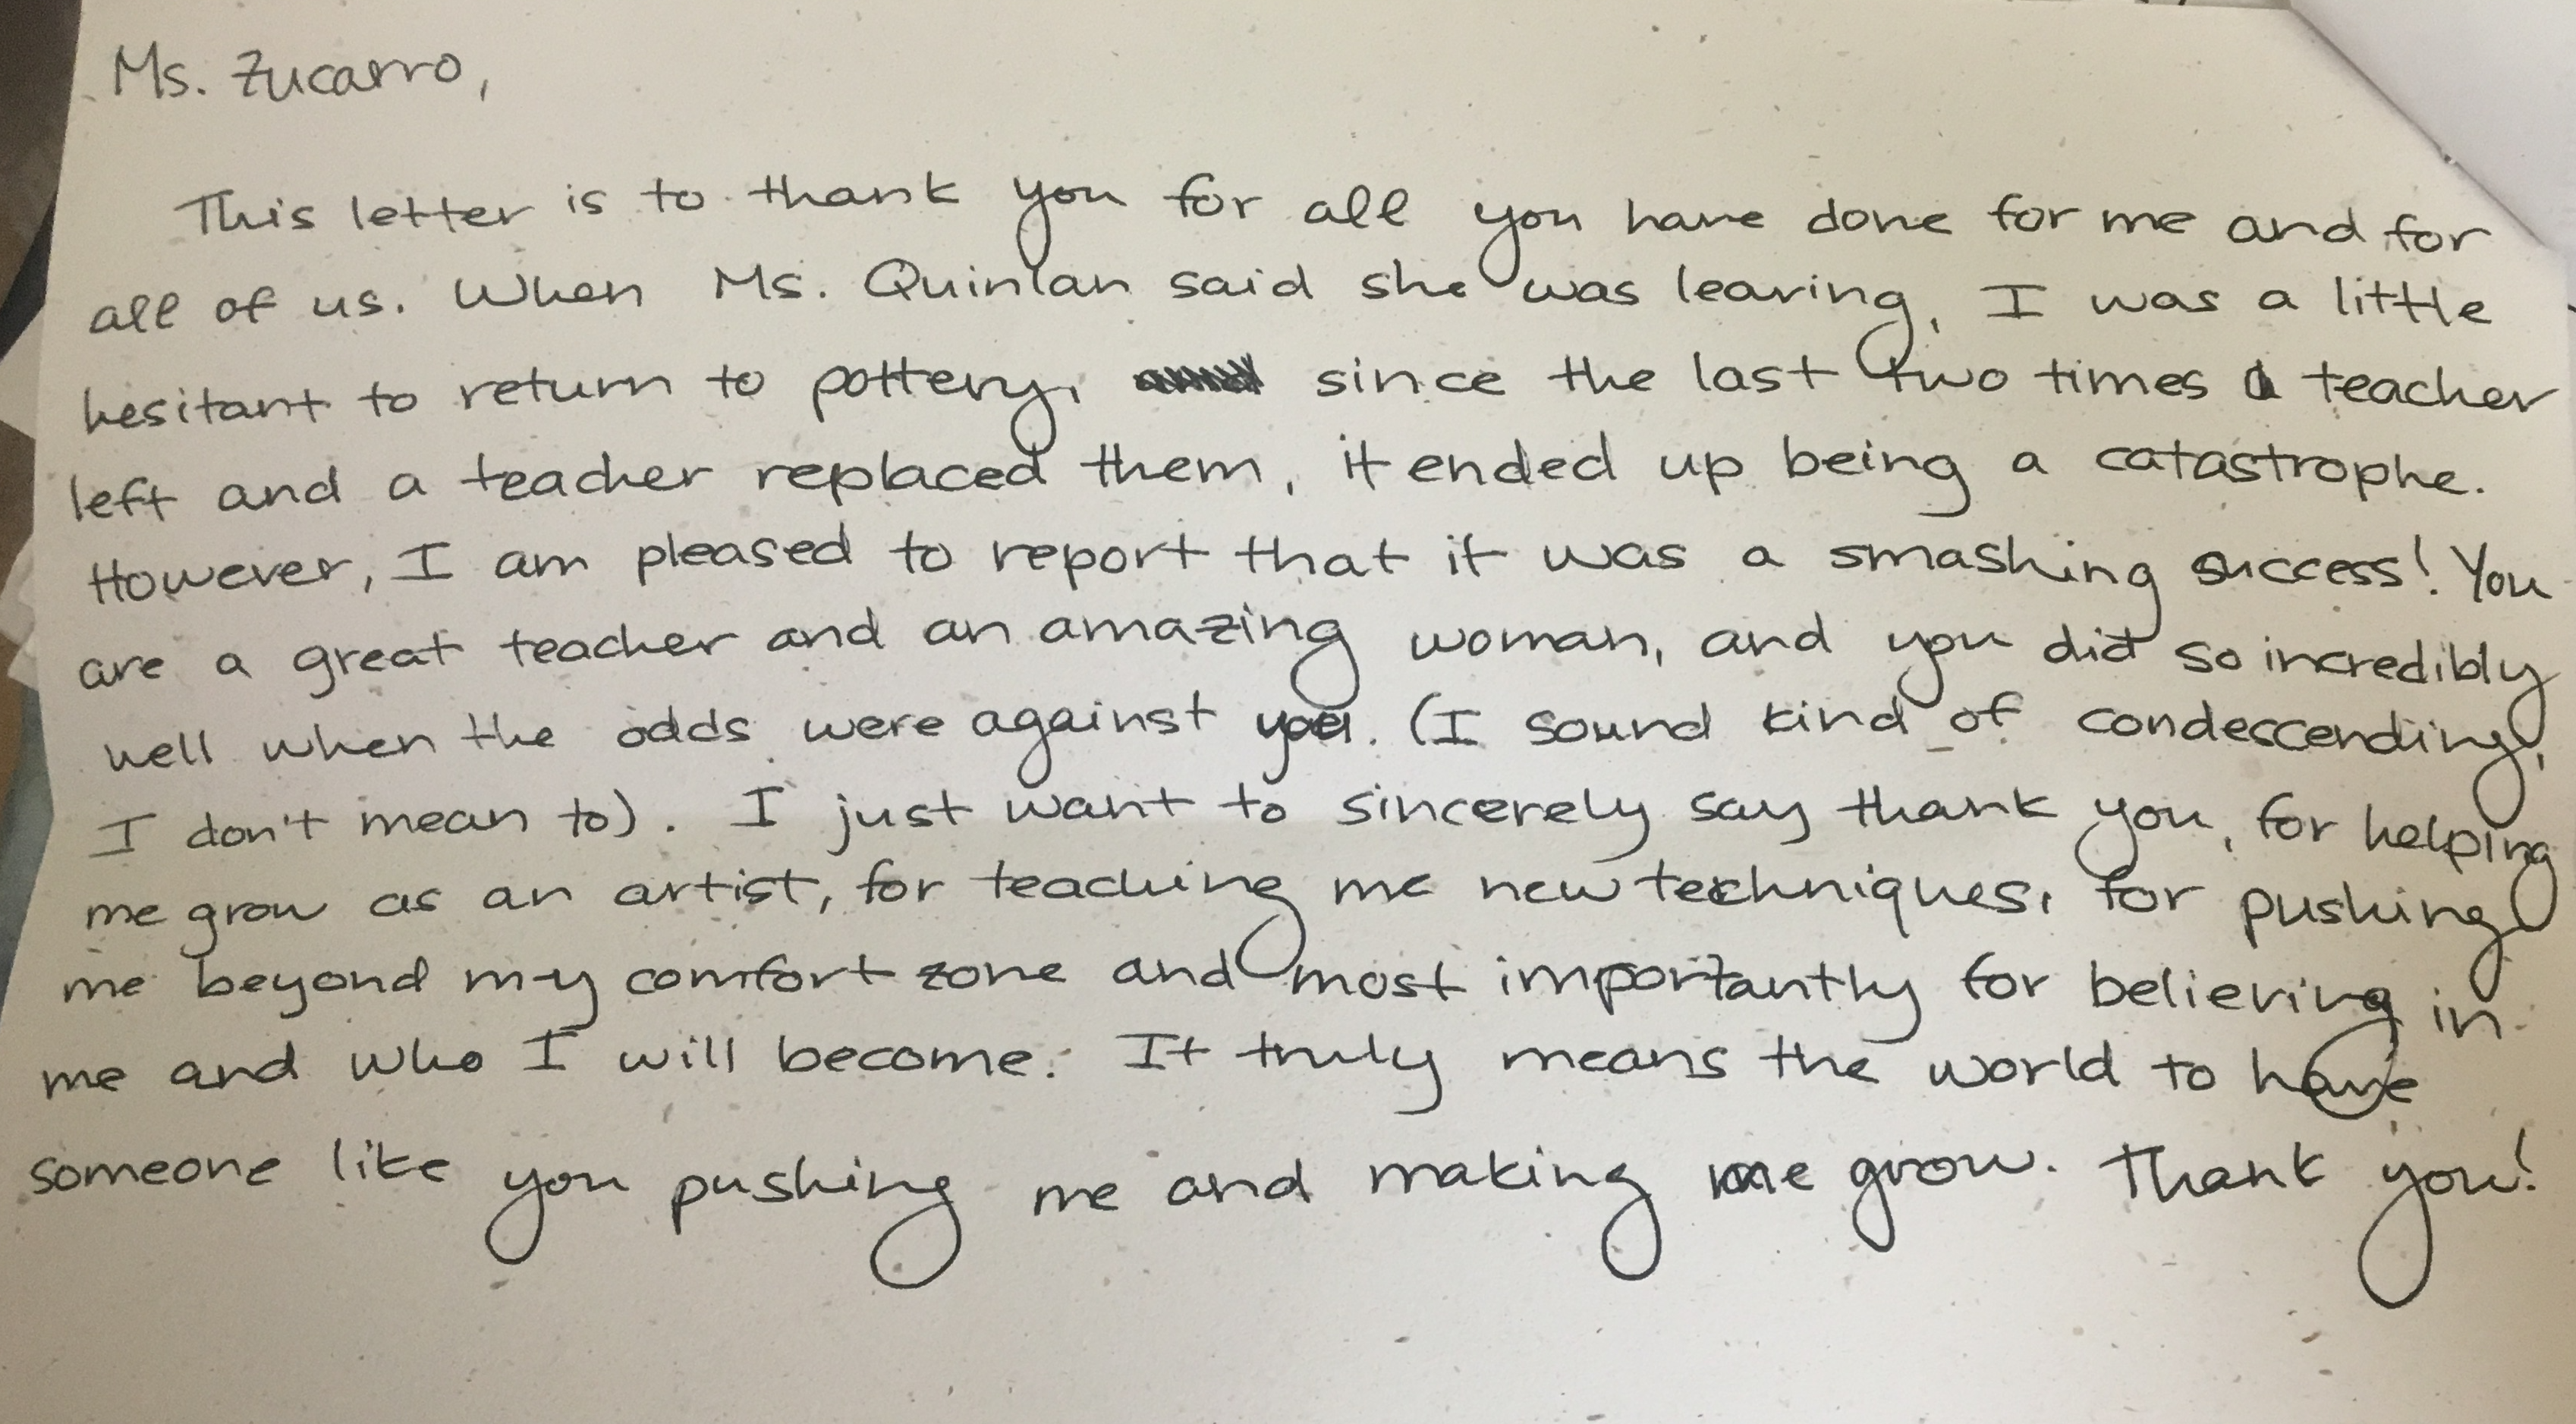 Ms. Zucarro,
This letter is to thank you for all you have done for me and for
all of us. When Ms. Quinlan said she was leaving, I was a little
hesitant to return to pottery, since the last two times a teacher
left and a teacher replaced them, it ended up being a catastrophe.
However, I am pleased to report that it was a smashing success! You
are a great teacher and an amazing woman, and you did so incredibly
well when the odds were against you. (I sound kind of condescending,
I don't mean to). I just want to sincerely say thank you, for helping
me grow as an artist, for teaching me new techniques, for pushing
me beyond my comfort zone and most importantly for believing in
me and who I will become. It truly means the world to have
someone like you pushing me and making me grow. Thank you!